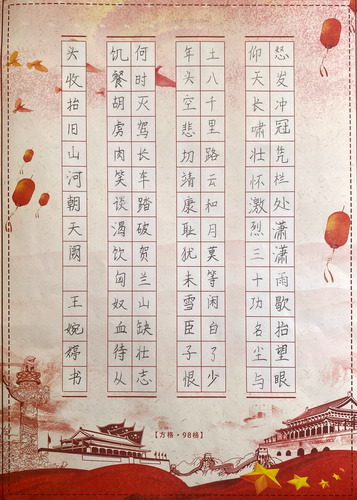 怒发冲冠凭栏处潇潇雨歇抬望眼
仰天长啸壮怀激烈三十功名尘与
土八千里路云和月莫等闲白了少
年头空悲切靖康耻犹未雪臣子恨
何时灭驾长车踏破贺兰山缺壮志
饥餐胡虏肉笑谈渴饮匈奴血待从
头收抬旧山河朝天阙 王婉婷书
【方格·98格】